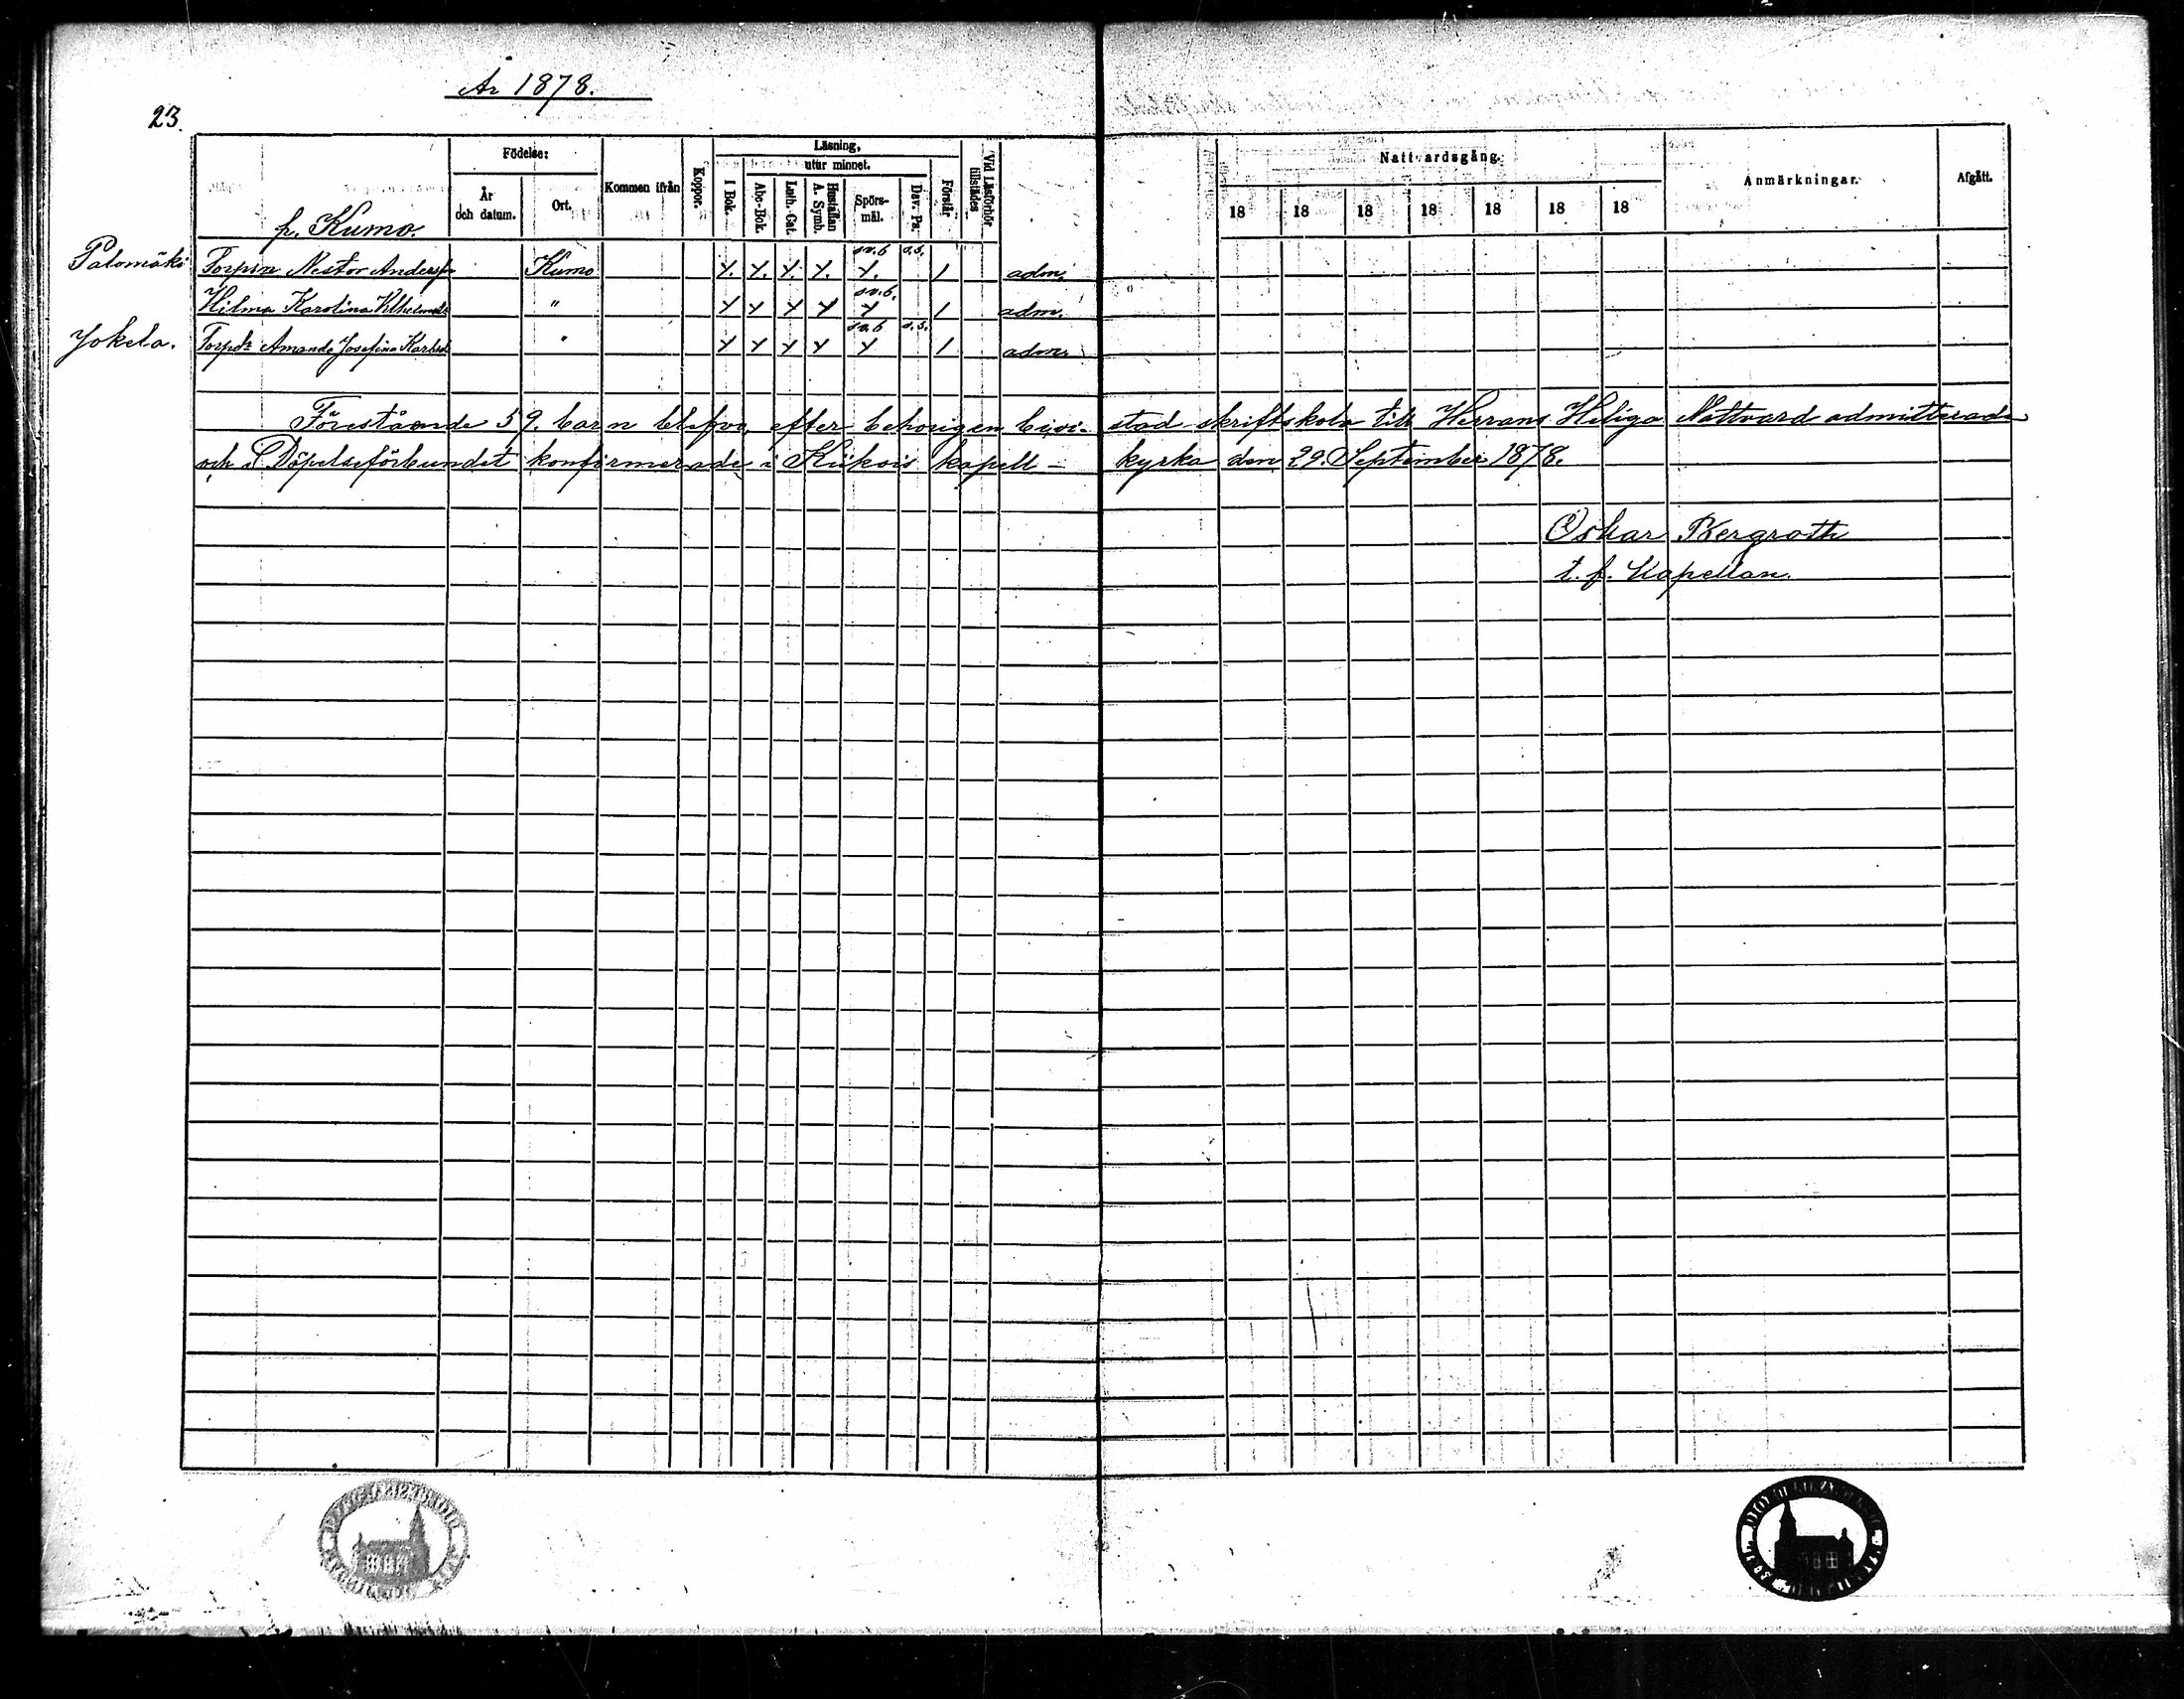 År 1878.
23.
Födelse:
År och datum.
Ort.
Kommen ifrån
Koppor.
Läsning,
utur minnet.
I Bok.
Abc-Bok.
Luth. Cat.
Hustaflan A. Symb.
Spörs-mål.
Dav. Ps.
Förstår
Vid Läsförhör tillstädes
Nattvardsgång.
18 18 18 18 18 18 18
Anmärkningar.
Afgått.
p. Kumo.
Palomäki Torpsn Nestor Andersn Kumo adm.
Hilma Karolina " adm.
Jokela. Torpdr Amanda Josefina adm.
Förestående 59. barn blefvo, efter behörigen bivi-stad skriftskola till Herrans Heliga Nattvard admitterade
och i Döpelseförbundet konfirmerade i Kiikois kapell-kyrka den 29. September 1878.
Oskar Bergroth
t. f. Kapellan.